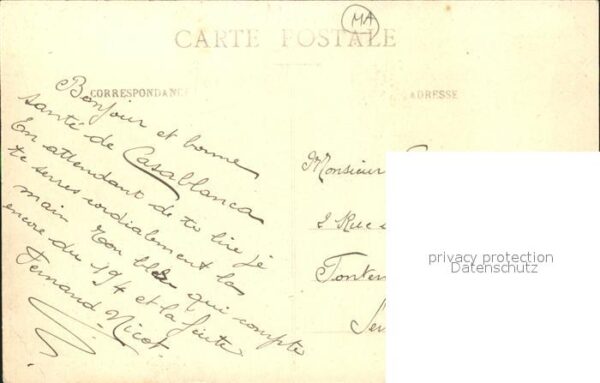 MA
CARTE POSTALE
CORRESPONDANCE
ADRESSE
Bonjour et bonne
santé de Casablanca
En attendant de tu lire je
te serres cordialement la
main Ton bleu qui compte
encore du 194 et la
Fernand Nicot.
Monsieur
2 Rue
Fonten
privacy protection
Datenschutz